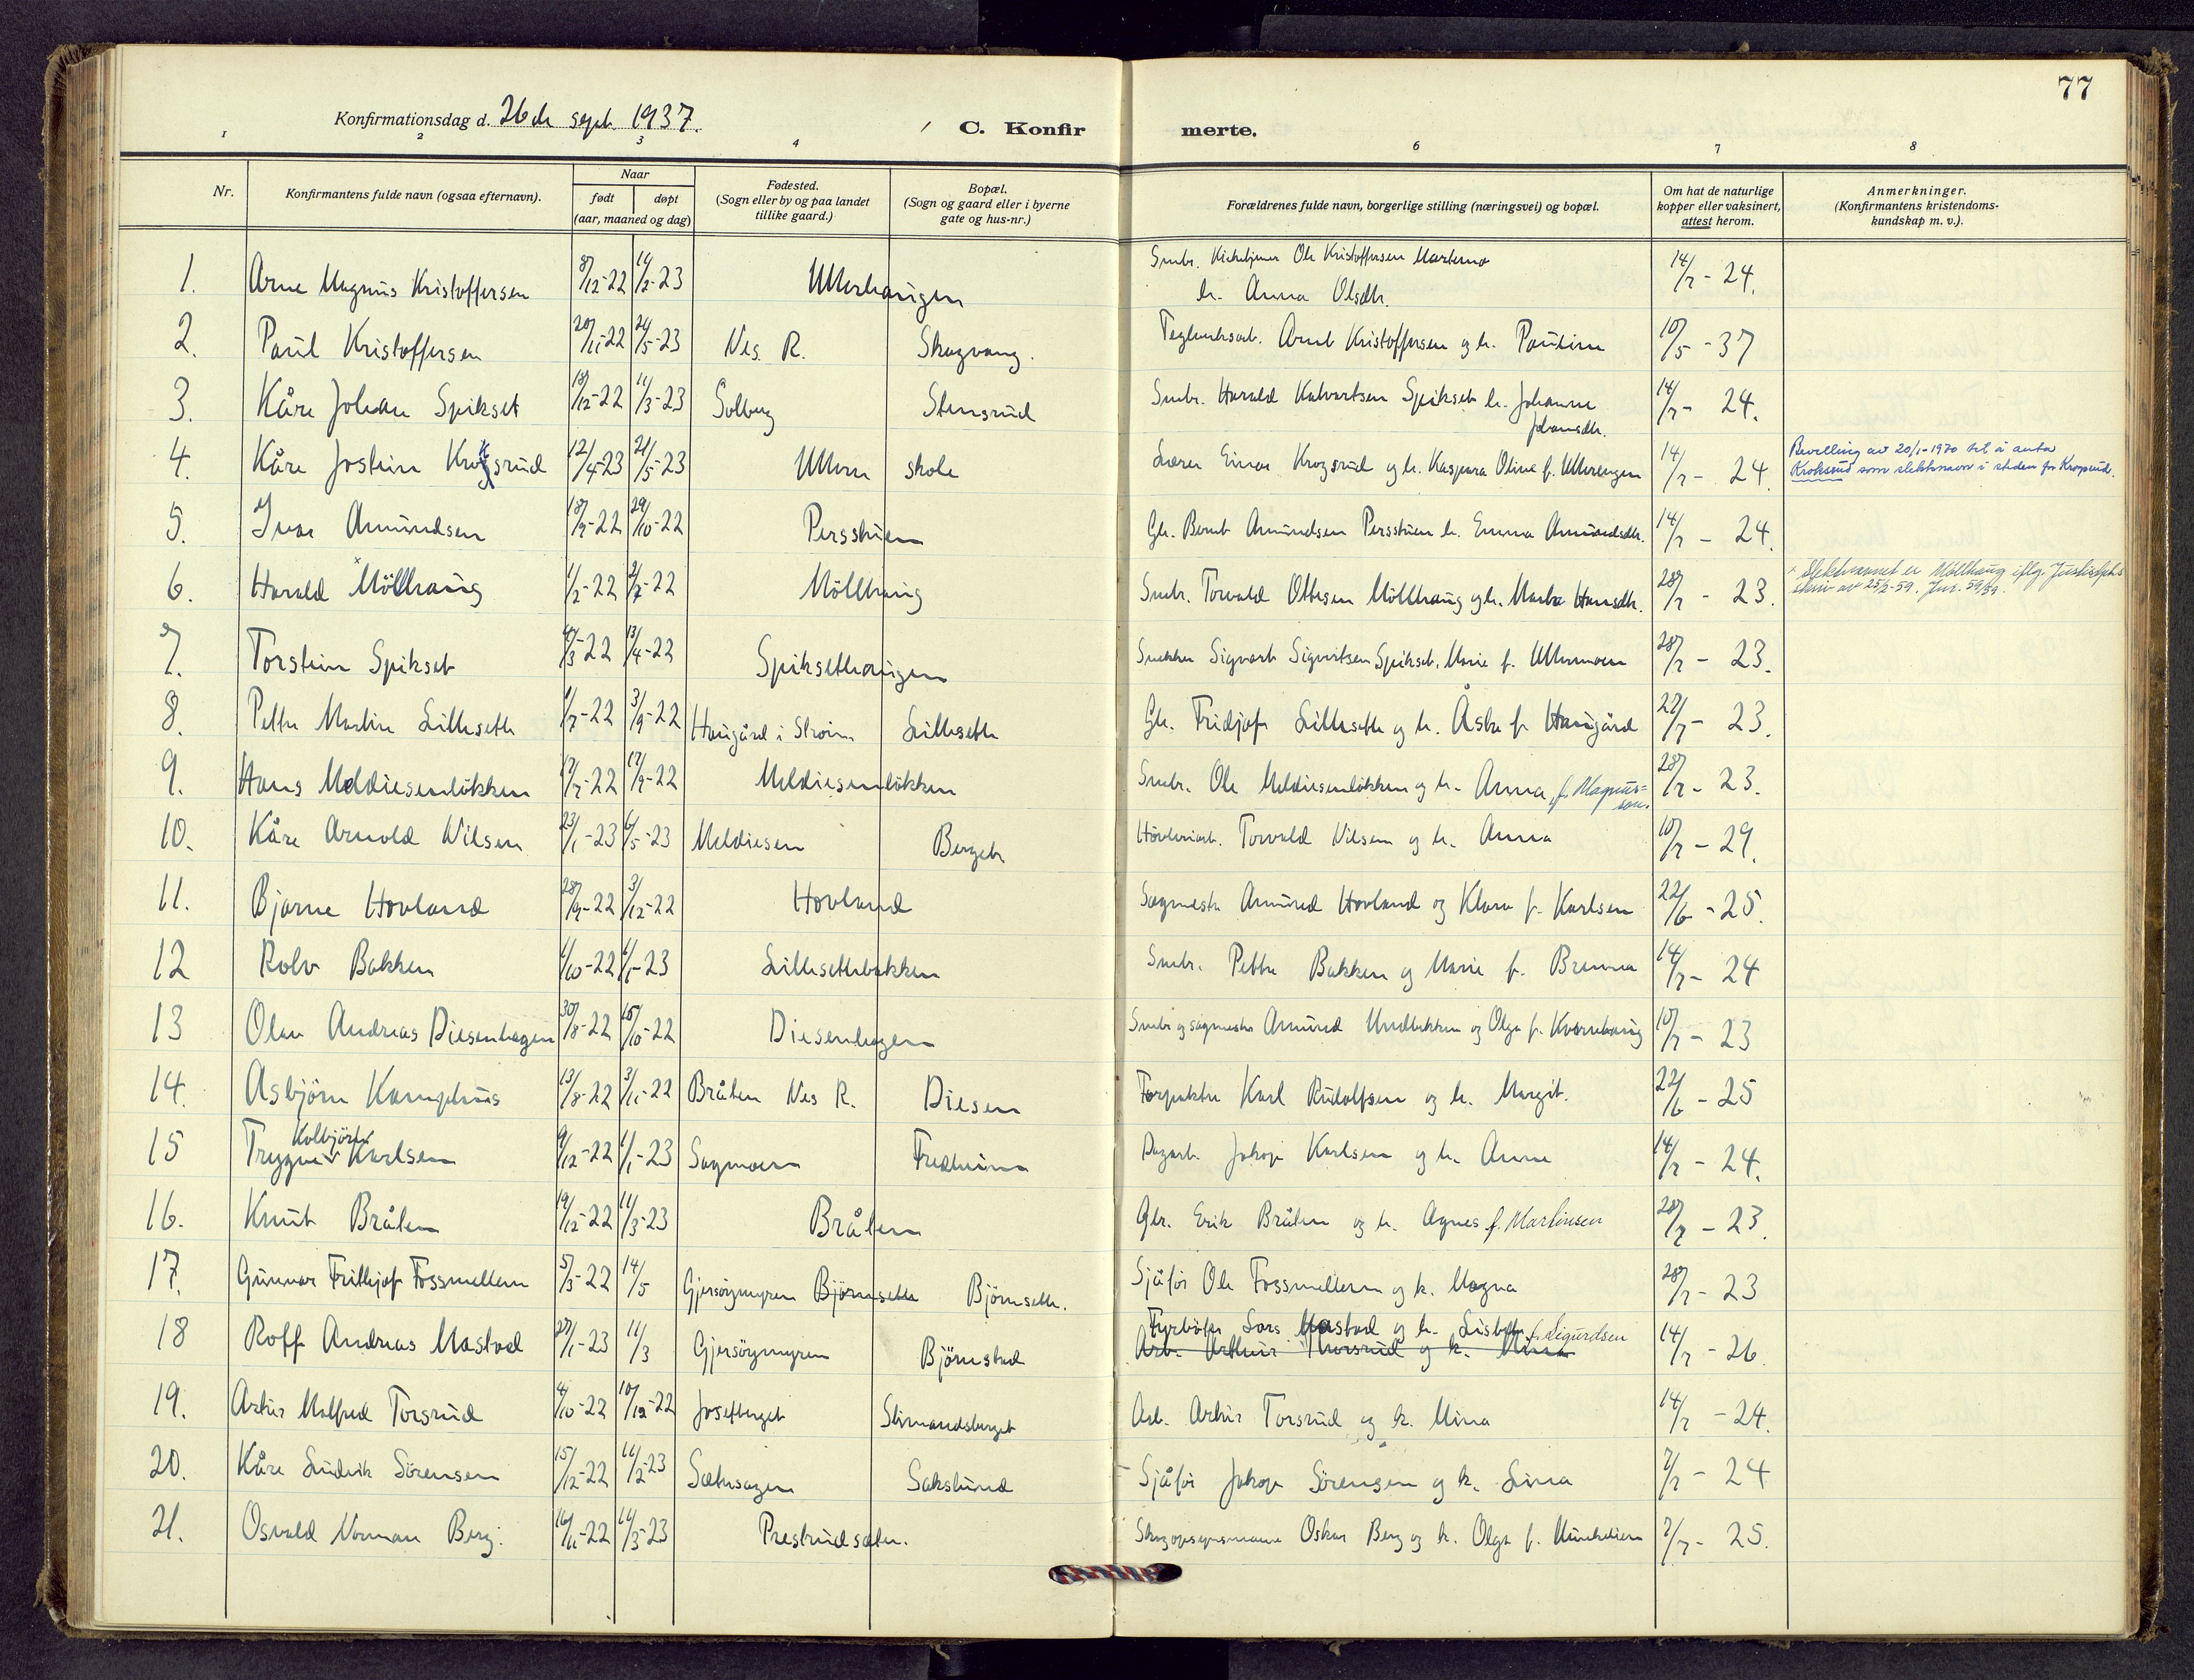 77
Konfirmationsdag d. 26de sept. 1937.
C. Konfirmerte.
1 2 3 4 6 7 8
Nr.
Konfirmantens fulde navn (ogsaa efternavn).
Naar
født døpt
(aar, maaned og dag)
Fødested.
(Sogn eller by og paa landet
tillike gaard.)
Bopæl.
(Sogn og gaard eller i byerne
gate og hus-nr.)
Forældrenes fulde navn, borgerlige stilling (næringsvei) og bopæl.
Om hat de naturlige
kopper eller vaksinert,
attest herom.
Anmerkninger.
(Konfirmantens kristendoms-
kundskap m. v.).
1. Arne Magnus Kristoffersen 8/12-22 14/2-23 Ullerhaugen Smbr. Ole Kristoffersen h. Anna Olsdtr. 14/7-24.
2. Paul Kristoffersen 20/11-22 24/5-23 Nes R. Skogvang. Teglverksarb. Arnt Kristoffersen og h. Pauline 10/5-37
3. Kåre Johan Spikset 18/12-22 11/3-23 Solberg Stensrud Smbr. Harald Spikset h. Johanne
Johansdtr. 14/7-24.
4. Kåre Jostein Krogsrud 12/4-23 21/5-23 Ullern skole Lærer Einar Krogsrud og h. Kaspara Oline f. Ullerengen 14/7-24. Bevilling av 20/1-1970 til å anta
Kroksrud som slektsnavn i steden for Krogsrud.
5. Ivar Amundsen 18/9-22 29/10-22 Persstuen Gbr. Bernt Amundsen Persstuen h. Emma Amundsdtr. 14/7-24.
6. Harald Möllhaug 1/2-22 2/7-22 Möllhaug Smbr. Torvald Ottesen Möllhaug og h. Marta Hansdtr. 28/7-23. × Slektsnavnet er Möllhaug iflg. Justisdpts
skriv av 25/2-59. Jnr. 59/59.
7. Torstein Spikset /3-22 13/4-22 Spiksethaugen Snekker Sigvart Sigvartsen Spikset, Marie f. Ullermoen 28/7-23.
8. Petter Martin Lilleseth 1/7-22 3/9-22 Haugård i Ström Lilleseth Gbr. Fridjof Lilleseth og h. Åsta f. Haugård 22/7-23.
9. Hans Meldiesenlökken 17/7-22 17/9-22 Meldiesenlökken Smbr. Ole Meldiesenlökken og h. Anna, f. Magnus-
son. 28/7-23.
10. Kåre Arnold Nilsen 23/1-23 6/5-23 Meldiesen Berget Hövleriarb. Torvald Nilsen og h. Anna 10/7-29.
11. Bjarne Hovland 28/9-22 3/12-22 Hovland Sagmestr Amund Hovland og Klara f. Karlsen 22/6-25.
12 Rolv Bakken 1/10-22 1/1-23 Lillesethbakken Smbr. Petter Bakken og Marie f. Brenna 14/7-24
13 Olav Andreas Diesenhagen 30/8-22 15/10-22 Diesenhagen Smbr og sagmester Amund og Olga f. Kvarnehaug 10/7-23
14. Asbjörn Kamphus 13/8-22 3/11-22 Bråten Nes R. Diesen Karl Rudolfsen og h. Margit. 22/6-25
15 Trygve Kolbjörn Karlsen 9/12-22 1/1-23 Sagmoen Fredheim Jakop Karlsen og h. Anne 14/7-24.
16. Knut Bråten 19/12-22 11/3-23 Bråten Gbr. Erik Bråten og h. Agnes f. Martinsen 28/7-23.
17. Gunnar Frithjof Fossmellem 5/3-22 14/5 Gjersöymyren Björnseth Björnseth. Sjåför Ole Fossmellem og h. Magna 28/7-23
18 Roff Andreas Mostad 27/1-23 11/3 Gjersöymyren Björnstad Fyrböter Lars Mostad og h. Lisbeth f. Sigurdsen
Arb. Arthur Thorsrud og h. Mina 14/7-26.
19. Artur Malfred Torsrud 4/10-22 10/12-22 Josefberget Stinaredsberget Arb. Artur Torsrud og h. Mina 14/7-24.
20. Kåre Ludvik Sörensen 15/12-22 11/2-23 Sætersagen Sakslund Sjåför Jakop Sörensen og h. Lina 7/7-24
21. Osvald Norman Berg. 16/11-22 11/3-23 Prestrudsæter. Skogopsynsmann Oskar Berg og h. Olga f. 7/7-25.